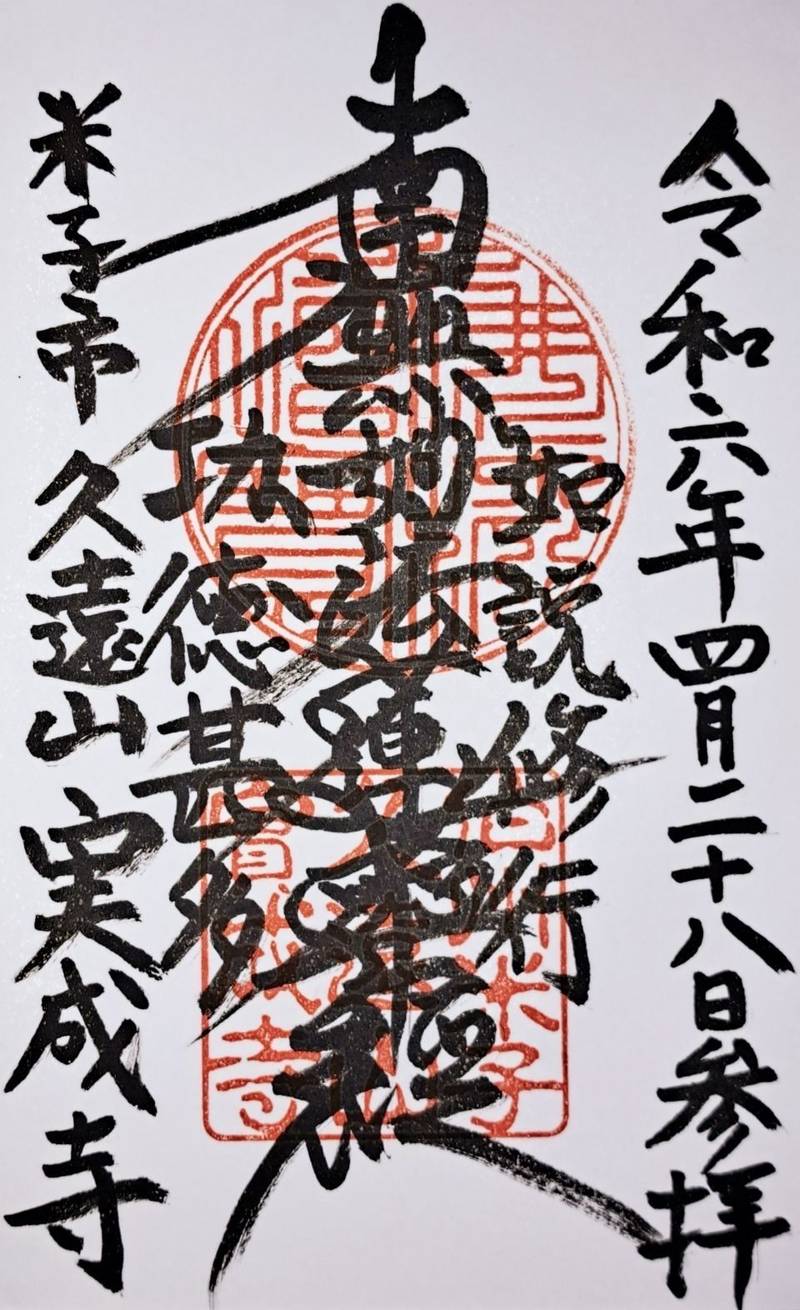 令和六年四月二十八日参拝
如説修行
南無妙法蓮華經
功徳甚多
米子市 久遠山 実成寺
米子
實成寺